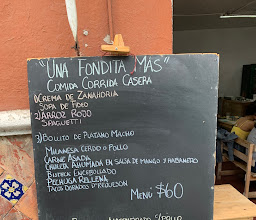 "UNA FONDITA MÁS"
COMIDA CORRIDA CASERA
1) CREMA DE ZANAHORIA
SOPA DE FIDEO
2) ARROZ ROJO
SPAGUETTI
3) BOLLITO DE PLATANO MACHO
MILANESA CERDO O POLLO
CARNE ASADA
CHULETA AHUMADA EN SALSA DE MANGO Y HABANERO
BISTECK ENCEBOLLADO
PECHUGA RELLENA
TACOS DORADOS D'REQUESON
MENÚ $60
POLLO